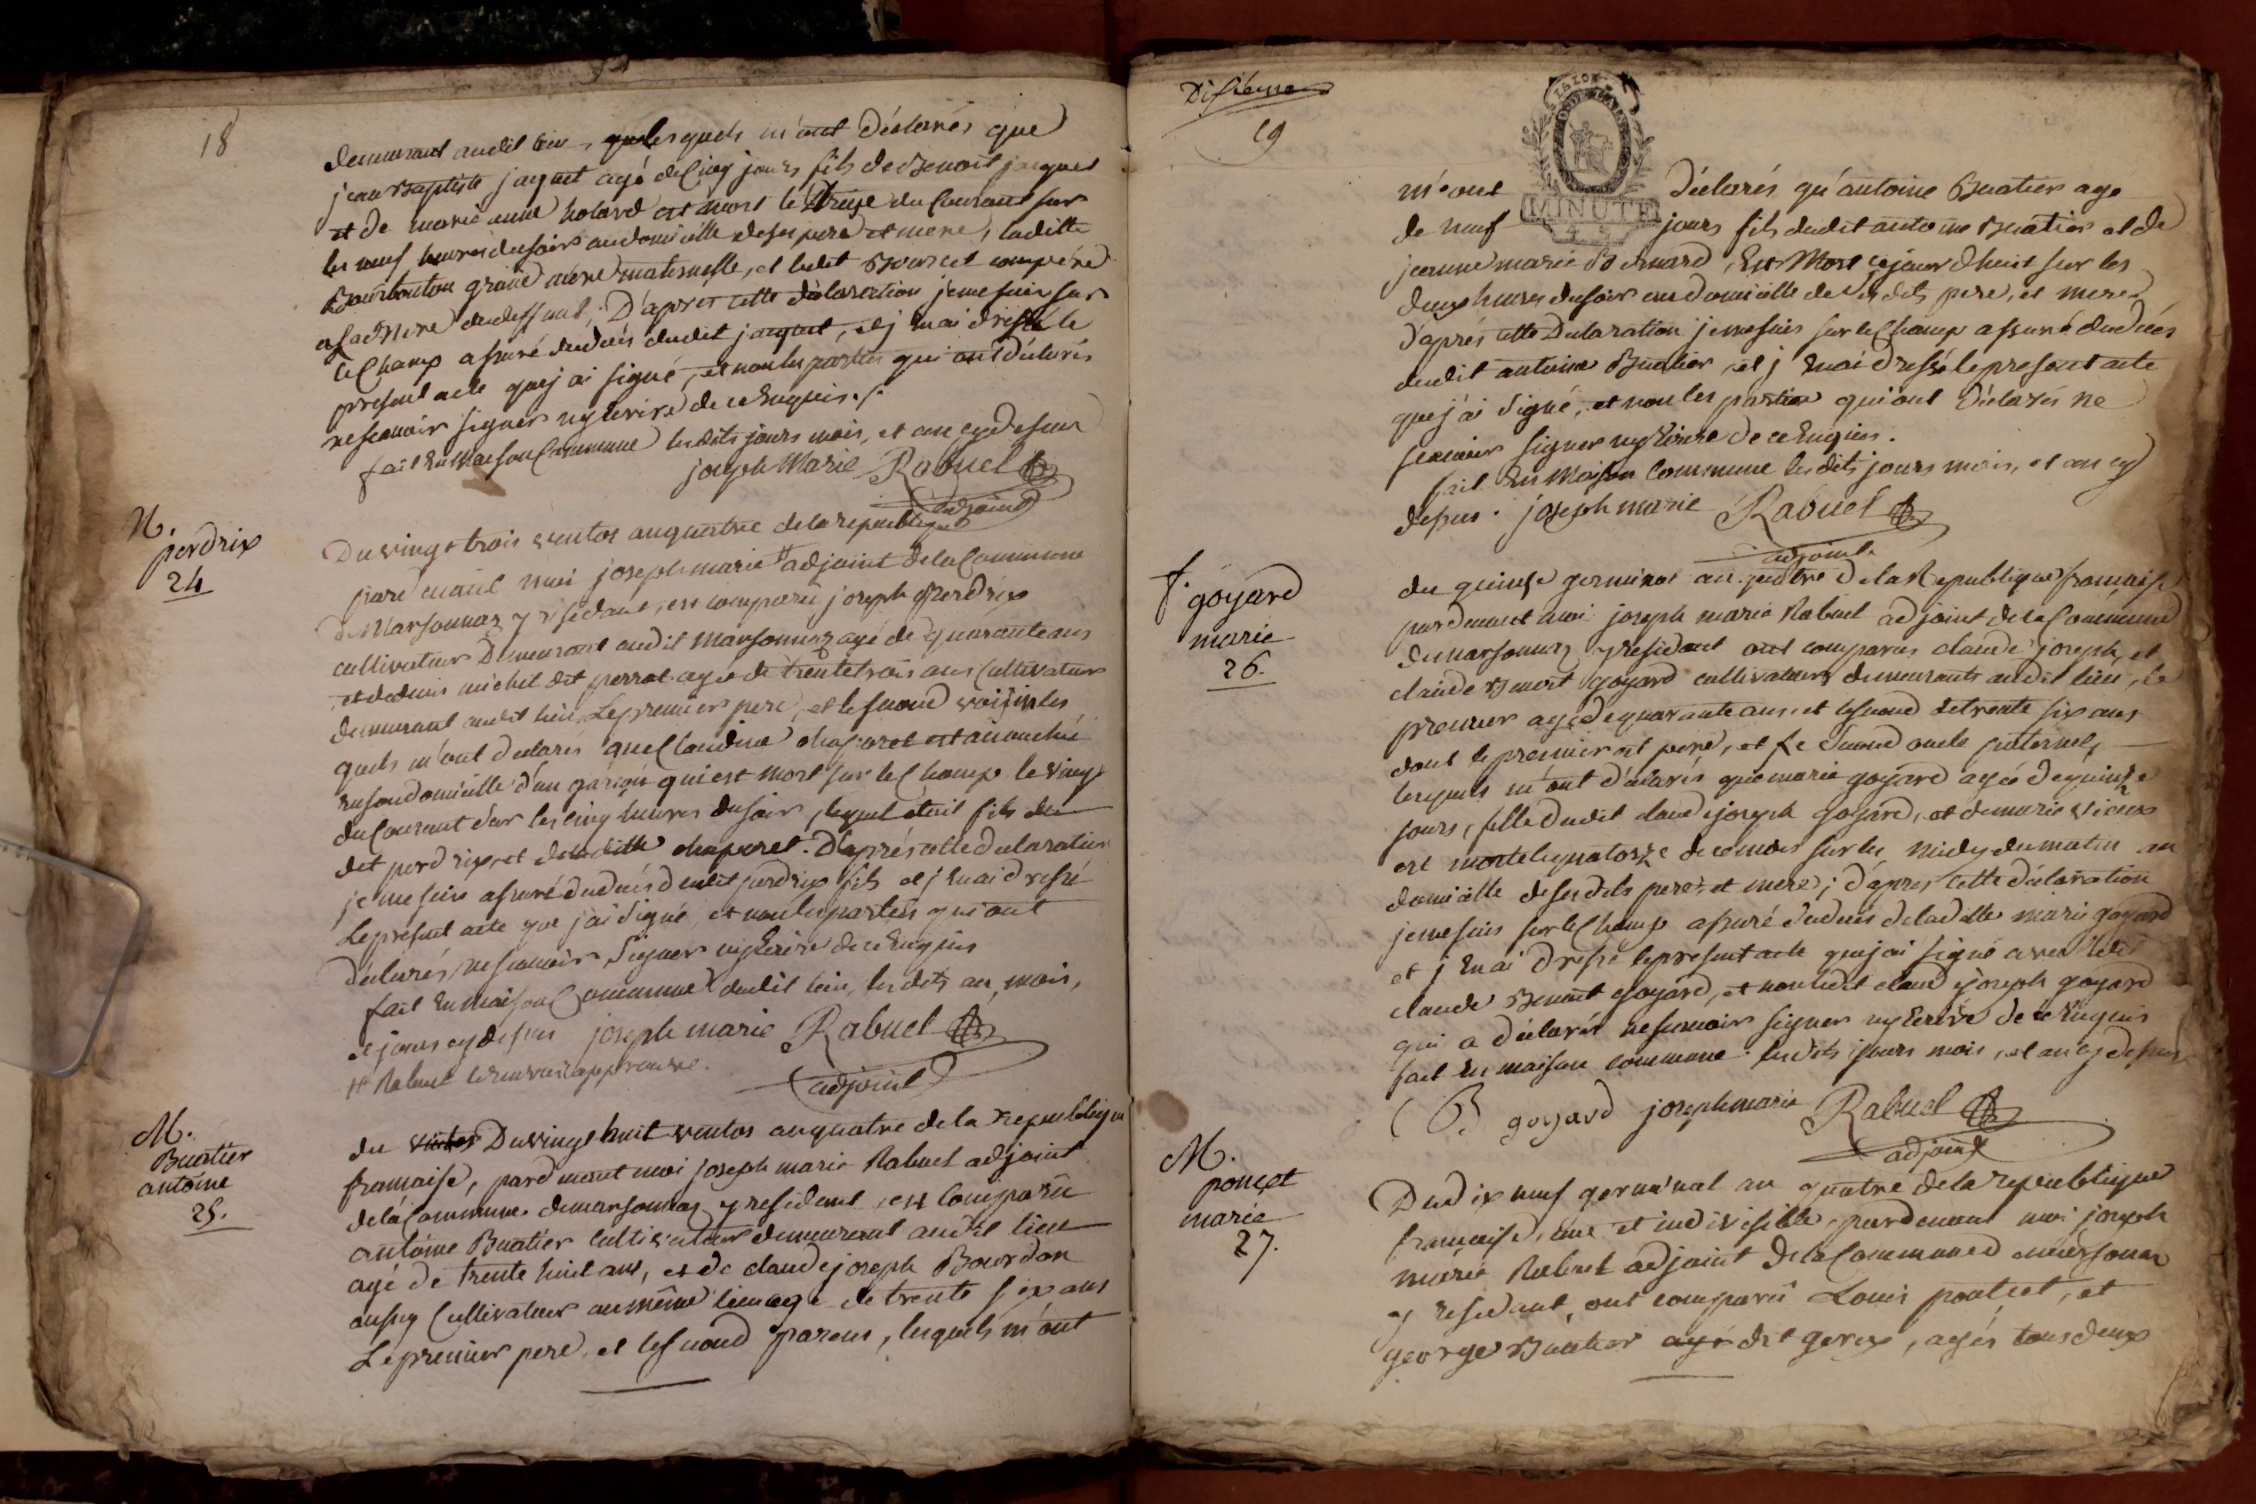 18
demeurant audit lieu, lesquels m'ont déclarés que
jean Baptiste jaquet agé de Cinq jours fils de Benoit jaquet
et de marie anne holard est mort le treize du Courant sur
les neuf heures du soir au domicille de ses pere et mere, laditte
Bourbonton grand mere maternelle, et ledit compére
D'apres cette déclaration je me suis sur
le Champ assuré du décés dudit jaquet, et j'en ai dressé le
present acte que j'ai signé, et non les parties qui ont déclarés
ne scavoir signer ny Ecrire de ce Enquis./.
fait En Maison Commune lesdits jours mois, et an cy dessus
joseph Marie Rabuel
adjoint
N.
perdrix
24
Du vingt trois ventos an quatre de la republique
pardevant moi joseph marie # adjoint de la Commune
de Marsonnas y résidant, est comparu joseph Perdrix
cultivateur Demeurant audit Marsonnaz agé de quarante ans
et de denis michel dit perrat agé de trente trois ans Cultivateur
demeurant audit lieu, Le premier pere, et le second voisin les
quels m'ont déclarés que Claudine chaparet est acouchée
en son domicille d'un garçon qui est mort sur le Champ le vingt
du Courant sur les cinq heures du soir, lequel étoit fils du
dit perdrix, et de laditte chaparet. D'aprés cette déclaration
je me suis assuré du décés dudit perdrix fils et j'en ai dressé
Le present acte que j'ai signé, et non les parties qui ont
déclarés ne scavoir Signer ny Ecrire de ce Enquis
fait En maison Commune dudit lieu, lesdits an, mois,
et jours cy dessus joseph marie Rabuel
# Rabuel le renvoi approuvé.
adjoint
M.
Buatier
antoine
25.
du ventos Du vingt huit ventos an quatre de la republique
francaise, pardevant moi joseph marie Rabuel adjoint
de la Commune de marsonnas y résidant, est Comparu
antoine Buatier Cultivateur demeurant audit lieu
agé de trente huit ans, et de claude joseph Bourdon
aussy Cultivateur au même lieu agé de trente six ans
Le premier pere, et le second parens, lesquels m'ont
Dixieme
19
MINUTE
m'ont déclarés qu'antoine Buatier agé
de neuf jours fils dudit antoine Buatier et de
jeanne marie Bernard, Est Mort cejourd'huit sur les
deux heures du soir au domicille de ses dits pere, et mere
d'aprés cette Déclaration je me suis sur le Champ assuré du décés
dudit antoine Buatier, et j'en ai dressé le present acte
que j'ai signé, et non les parties qui ont déclarés ne
scavoir signer ny Ecrire de ce Enquis.
fait En Maison Commune lesdits jours mois, et an cy
dessus. joseph marie Rabuel
adjoint
f.
goyard
marie
26.
du quinze germinal an quatre de la Republique francaise
pardevant moi joseph marie Rabuel adjoint de la Commune
de marsonnaz y résidant ont comparus claude joseph, et
claude Benoit goyard cultivateurs demeurants audit lieu, le
premier agé de quarante ans, et le second de trente six ans
dont le premier est pere, et Le Second oncle paternel,
lesquels m'ont déclarés que marie goyard agée de quinze
jours, fille dudit claude joseph goyard, et de marie
est morte le quatorze de ce mois sur les midy du matin au
domicille de ses dits pere, et mere; d'apres cette déclaration
je me suis sur le Champ assuré du décés de laditte marie goyard
et j'en ai dressé le present acte que j'ai signé avec ledit
claude Benoit goyard, et non ledit claude joseph goyard
qui a déclarés ne scavoir signer ny Ecrire de ce Enquis
fait En maison commune lesdits jours mois, et an cy dessus
C B goyard joseph marie Rabuel
adjoint
M.
ponçet
marie
27.
Du dix neuf germinal an quatre de la republique
francaise, une et indivisible, pardevant moi joseph
marie Rabuel adjoint de la Commune de marsonnas
y résidant, ont comparu Louis poncet, et
george Buatier agé dit gorex, agés tous deux